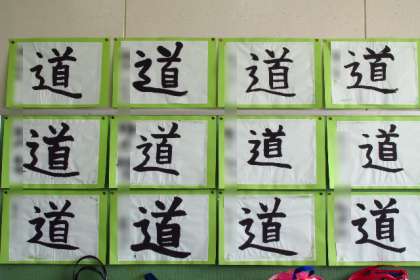 道 道 道 道
道 道 道 道
道 道 道 道